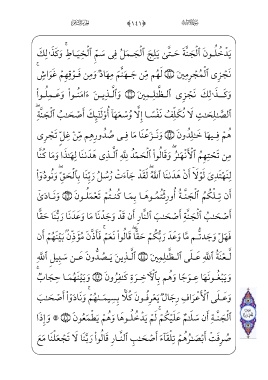 يَدْخُلُونَ الْجَنَّةَ حَتَّىٰ يَلِجَ الْجَمَلُ فِى سَمِّ الْخِيَاطِ وَكَذَٰلِكَ
نَجْزِى الْمُجْرِمِينَ ﴿٤٠﴾ لَهُم مِّن جَهَنَّمَ مِهَادٌ وَمِن فَوْقِهِمْ غَوَاشٍ
وَكَذَٰلِكَ نَجْزِى الظَّٰلِمِينَ ﴿٤١﴾ وَالَّذِينَ ءَامَنُوا وَعَمِلُوا
الصَّٰلِحَٰتِ لَا نُكَلِّفُ نَفْسًا إِلَّا وُسْعَهَا أُولَٰئِكَ أَصْحَٰبُ الْجَنَّةِ
هُمْ فِيهَا خَٰلِدُونَ ﴿٤٢﴾ وَنَزَعْنَا مَا فِى صُدُورِهِم مِّنْ غِلٍّ تَجْرِى
مِن تَحْتِهِمُ الْأَنْهَٰرُ وَقَالُوا الْحَمْدُ لِلَّهِ الَّذِى هَدَىٰنَا لِهَٰذَا وَمَا كُنَّا
لِنَهْتَدِىَ لَوْلَا أَنْ هَدَىٰنَا اللَّهُ لَقَدْ جَاءَتْ رُسُلُ رَبِّنَا بِالْحَقِّ وَنُودُوا
أَن تِلْكُمُ الْجَنَّةُ أُورِثْتُمُوهَا بِمَا كُنتُمْ تَعْمَلُونَ ﴿٤٣﴾ وَنَادَىٰ
أَصْحَٰبُ الْجَنَّةِ أَصْحَٰبَ النَّارِ أَن قَدْ وَجَدْنَا مَا وَعَدَنَا رَبُّنَا حَقًّا
فَهَلْ وَجَدتُّم مَّا وَعَدَ رَبُّكُمْ حَقًّا قَالُوا نَعَمْ فَأَذَّنَ مُؤَذِّنٌ بَيْنَهُمْ أَن
لَّعْنَةُ اللَّهِ عَلَى الظَّٰلِمِينَ ﴿٤٤﴾ الَّذِينَ يَصُدُّونَ عَن سَبِيلِ اللَّهِ
وَيَبْغُونَهَا عِوَجًا وَهُم بِالْءَاخِرَةِ كَٰفِرُونَ ﴿٤٥﴾ وَبَيْنَهُمَا حِجَابٌ
وَعَلَى الْأَعْرَافِ رِجَالٌ يَعْرِفُونَ كُلًّا بِسِيمَىٰهُمْ وَنَادَوْا أَصْحَٰبَ
الْجَنَّةِ أَن سَلَٰمٌ عَلَيْكُمْ لَمْ يَدْخُلُوهَا وَهُمْ يَطْمَعُونَ ﴿٤٦﴾ ۞ وَإِذَا
صُرِفَتْ أَبْصَٰرُهُمْ تِلْقَاءَ أَصْحَٰبِ النَّارِ قَالُوا رَبَّنَا لَا تَجْعَلْنَا مَعَ